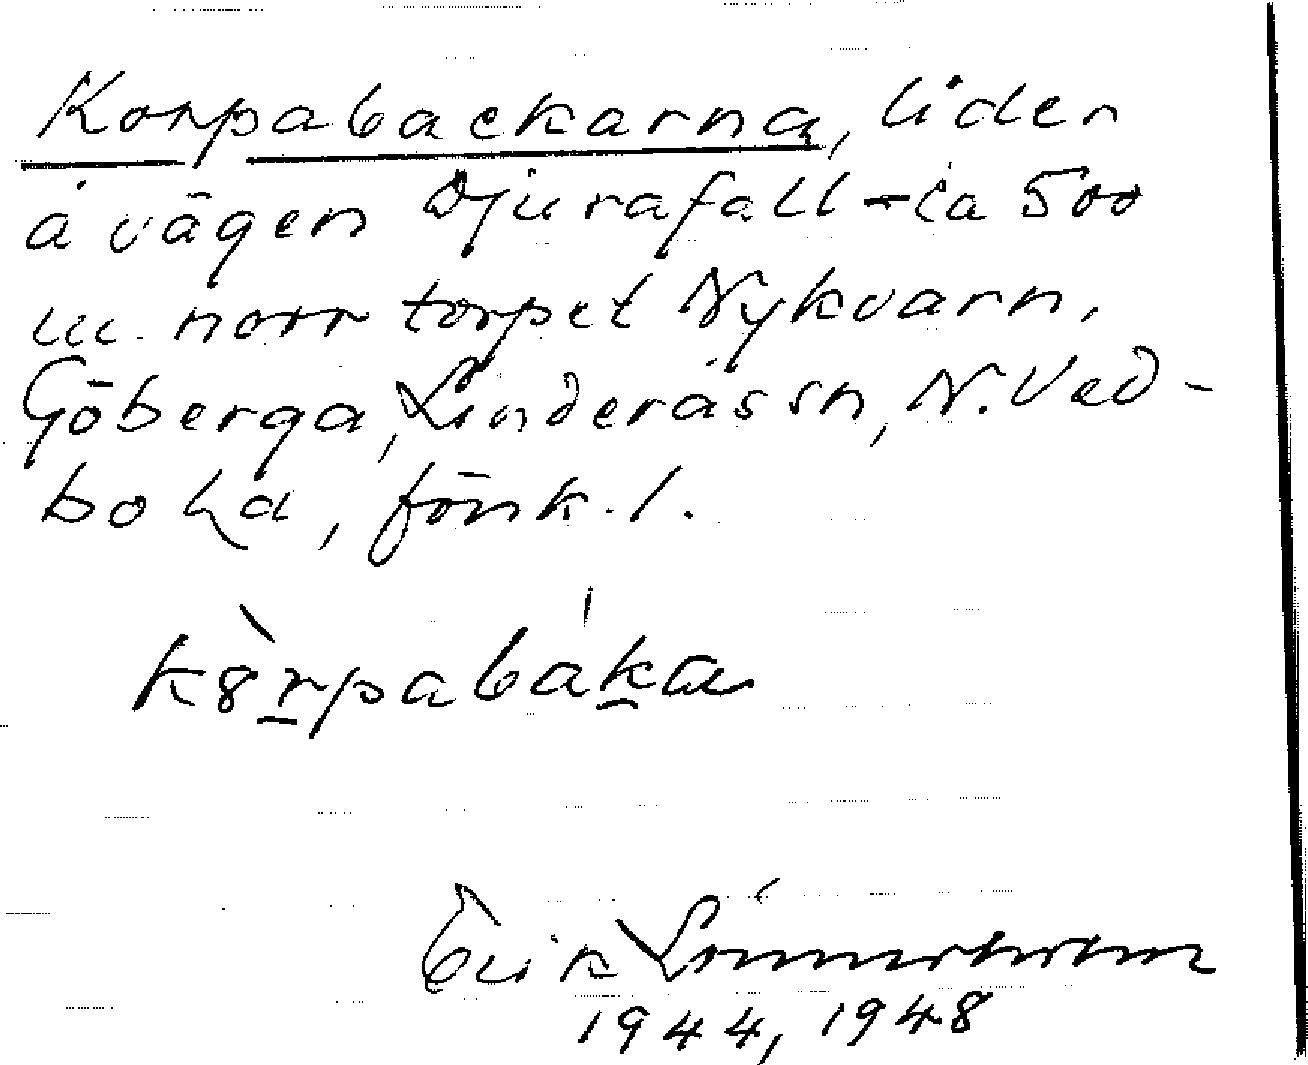 Korpabackarna, lider
å vägen Djurafall - ca 500
m norr torpet Nykvarn,
Göberga, Linderås sn, N. Ved-
bo hd, Jönk. l.
kȯ̀rpabáka
Erik
1944, 1948